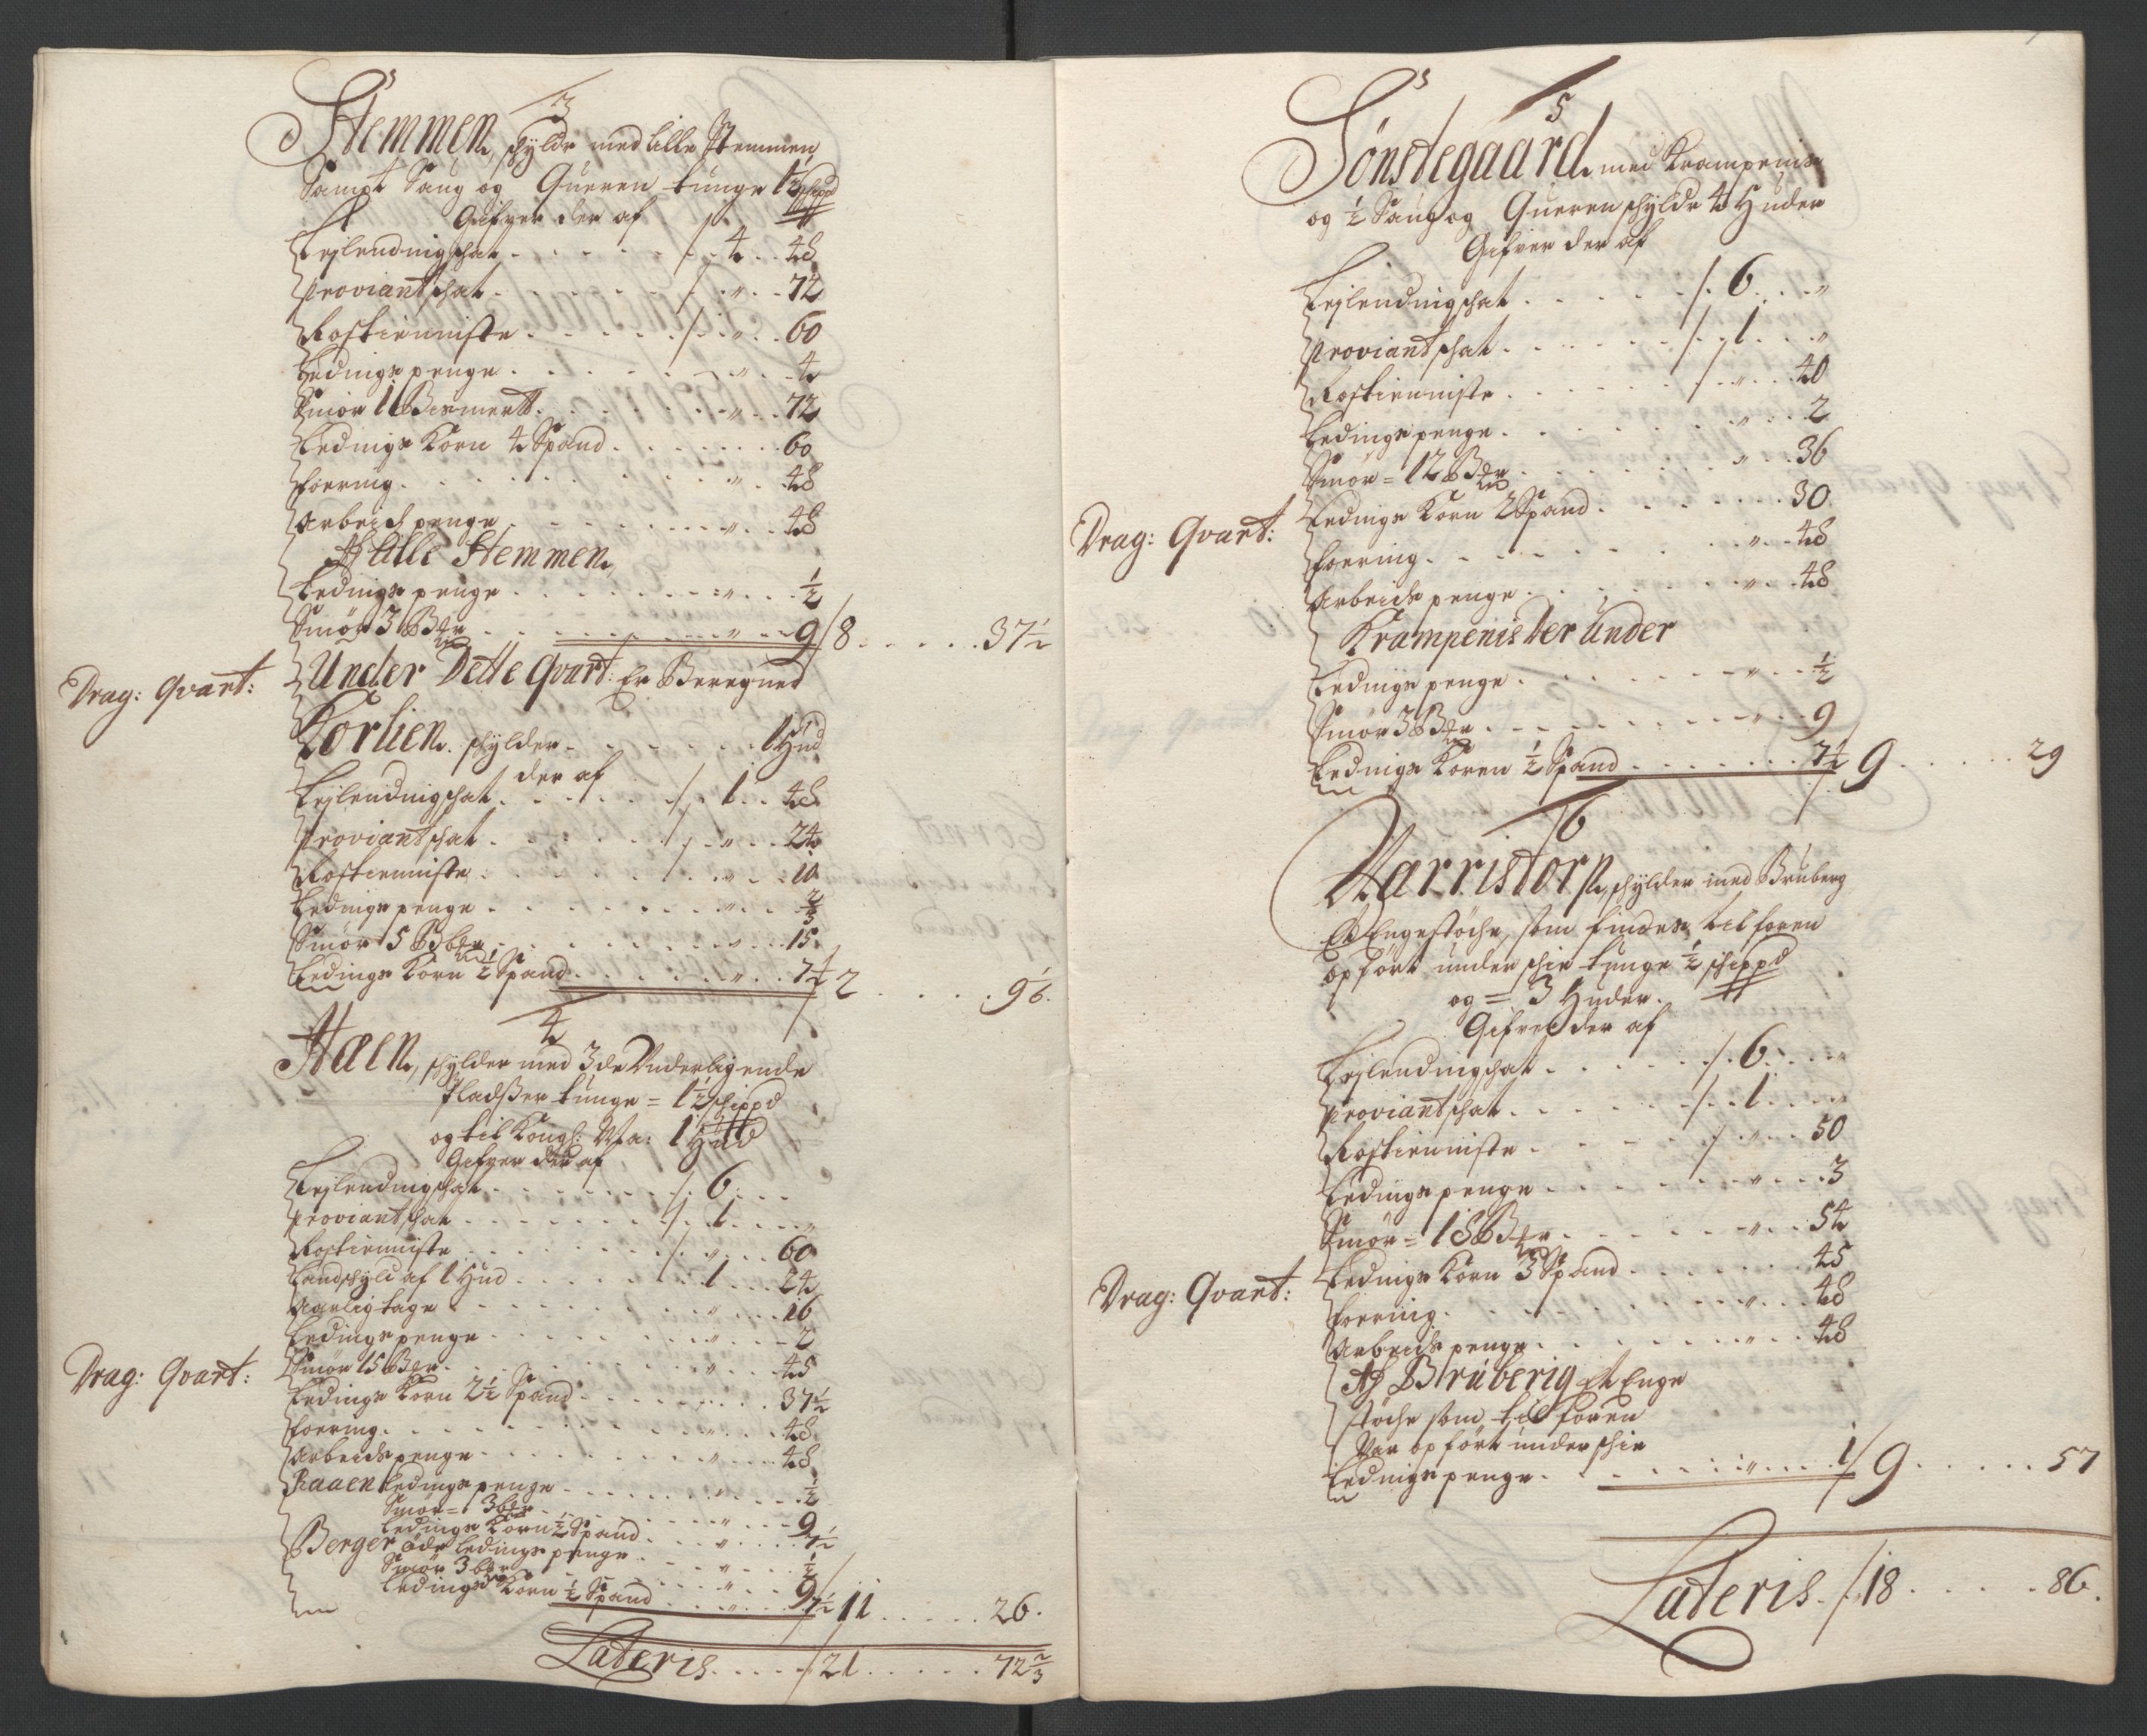 3
Stemmen, schylde med lille Stemmen
Sampt Saug og Queren tunge 1½ schippd
Gifver der af
Lejlendingschat . . . 4 . . 48
Proviantschat . . . " . . 72
Rostienniste . . . " . . 60
Ledings penge . . . " . . 4
Smör 1 Bismert . . . " . . 72
Ledings Korn 4 Spand . . . 60
Foering . . . " . . 48
Arbeids penge . . . " . . 48
Af Lille Stemmen,
Ledings penge . . . " . . ½
Smör 3 Ber . . . " . . 9 / 8 . . . 37½
Drag: Qvart: Under Dette Qvart: Er Beregned
Korlien. schylder . . . 1 Hud
der af
Lejlendingschat . . . 1 . . 48
Proviantschat . . . " . . 24
Rostienniste . . . " . . 10
Ledings penge . . . " . . ⅔
Smör 5 Ber . . . " . . 15
Ledings Korn ½ Spand . . . " . . 7½ 2 . . . 9⅙
4
Haen, schylder med 3de Underligende
Pladsser tunge = 1½ schippd
og til Kongl: Ma: 1 Hud
Gifver der af
Lejlendingschat . . . 6 . . .
Proviantschat . . . 1 . . "
Rostienniste . . . " . . 60
Landschyld af 1 Hud . . . 1 . . 24
Aarlig tage . . . " . . 16
Ledings penge . . . " . . 2
Drag: Qvart: Smör 15 Ber . . . " . . 45
Ledings Korn 2½ Spand . . . 37½
Foering . . . " . . 48
Arbeids penge . . . " . . 48
Raaen Ledings penge . . . " . . ½
Smör = 3 ber . . . " . . 9
Ledings Korn ½ Spand . . . " . . 7½
Berger öde Ledings penge . . . " . . ½
Smör 3 ber . . . " . . 9
Ledings Korn ½ Spand . . . " . . 7½ 11 . . . 26.
Lateris . . . 21 . . . 72⅔
5
Sönstegaard. med Krampenis
og ½ Saug og Queren schylde 4 Huder
Gifver der af
Lejlendingschat . . . 6 . . "
Proviantschat . . . 1 . . "
Rostienniste . . . " . . 40
Ledings penge . . . " . . 2
Smör = 12 Ber . . . " . . 36
Drag: Qvart: Ledings Korn 2 Spand . . . 30
Foering . . . " . . 48
Arbeids penge . . . " . . 48
Krampenis Der Under
Ledings penge . . . " . . ½
Smör 3 Ber . . . " . . 9
Ledings Koren ½ Spand . . . 7½ 9 . . . 29
6
Harristorp, schylder med Bruberg
Et Engestöche, som findes til foren
opfört under schie tunge ½ schippd
og = 3 Huder.
Gifves der af
Lejlendingschat . . . 6 . . "
Proviantschat . . . 1 . . "
Rostienniste . . . " . . 50
Ledings penge . . . " . . 3
Smör = 18 Ber . . . " . . 54
Drag: Qvart: Ledings Korn 3 Spand . . . 45
Foering . . . " . . 48
Arbeids penge . . . " . . 48
Af Brüberig Et Enge
stöche som til foren
Var opfört under schie
Ledings penge . . . " . . 1 / 9 . . . 57
Lateris . / 18 . . . 86.